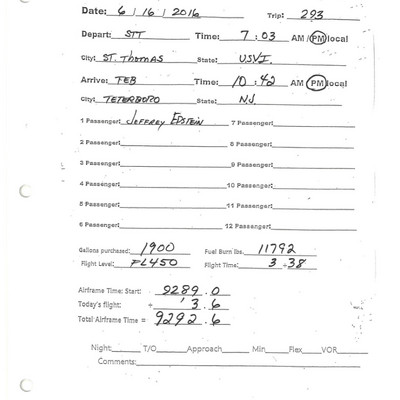 Date: 6 / 16 / 2016 Trip: 293
Depart: STT Time: 7 : 03 AM / PM local
City: ST. Thomas State: USVI.
Arrive: TEB Time: 10 : 42 AM / PM local
City: TETERBORO State: NJ
1 Passenger: JEFFREY EPSTEIN 7 Passenger:
2 Passenger: 8 Passenger:
3 Passenger: 9 Passenger:
4 Passenger: 10 Passenger:
5 Passenger: 11 Passenger:
6 Passenger: 12 Passenger:
Gallons purchased: 1900 Fuel Burn lbs. 11792
Flight Level: FL450 Flight Time: 3 + 38
Airframe Time: Start: 9289 . 0
Today's flight: + 3 . 6
Total Airframe Time = 9292 . 6
Night: T/O Approach Min Flex VOR
Comments: